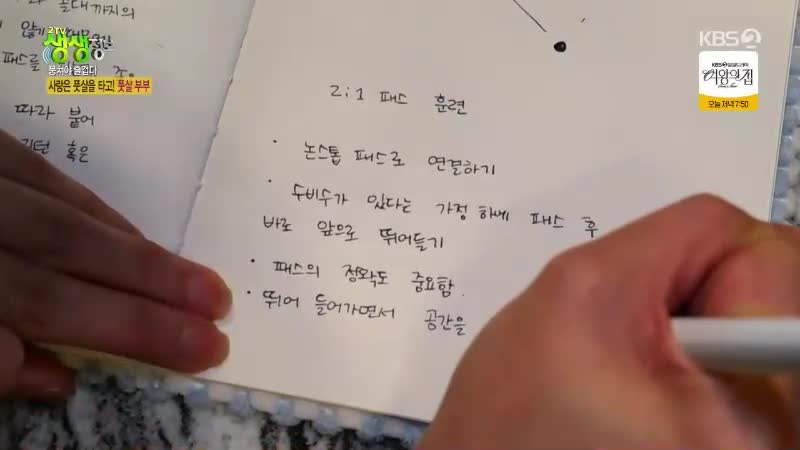 2TV
생생
뭉쳐야 즐겁다
사랑은 풋살을 타고! 풋살 부부
KBS2
여왕의 집
오늘 저녁 7:50
않기
패스를
따라 붙어
혹은
2:1 패스 훈련
· 논스톱 패스로 연결하기
· 수비수가 있다는 가정 하에 패스 후
바로 앞으로 뛰어들기
· 패스의 정확도 중요함.
· 뛰어 들어가면서 공간을